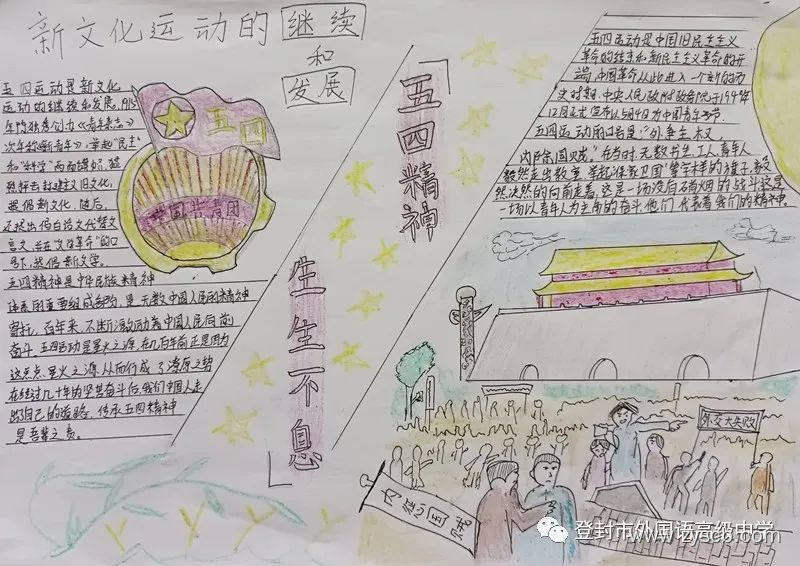 新文化运动的继续
和
发展
五四运动是新文化
运动的继续和发展。1915
年陈独秀创办《青年杂志》
次年称《新青年》,举起"民主"
和"科学"两面旗帜,猛
烈抨击封建主义旧文化,
提倡新文化,随后,
还提出倡白话文代替文
言文,并在"文学革命"的口
号下,提倡新文学。
五四精神是中华民族精神
体系的重要组成部分,是无数中国人民的精神
寄托,百年来,不断激励着中国人民向前
奋斗,五四运动是星火之源,在几百年前正是因为
这点点星火之源从而们成了燎原之势
在经过几十年的坚苦奋斗后,我们中国人走
出了自己的道路,传承五四精神
是吾辈之责。
五四
中国共青团
五四精神
生生不息
五四运动是中国旧民主主义
革命的结束和新民主主义革命的开
端,中国革命从此进入一个新的历
史时期,中央人民政府政务院于1949年
12月正式宣布以5月4日为中国青年节
五四运动的口号是:"外争主权
内除国贼。"在当时,无数书生,工人,青年人
毅然走出教室,举起"保家卫国"等字样的旗子,毅
然决然的向前走着,这是一场没有硝烟的战斗,这是
一场以青年人为主角的奋斗,他们,代表着我们的精神。
外交大失败
内惩国贼
登封市外国语高级中学